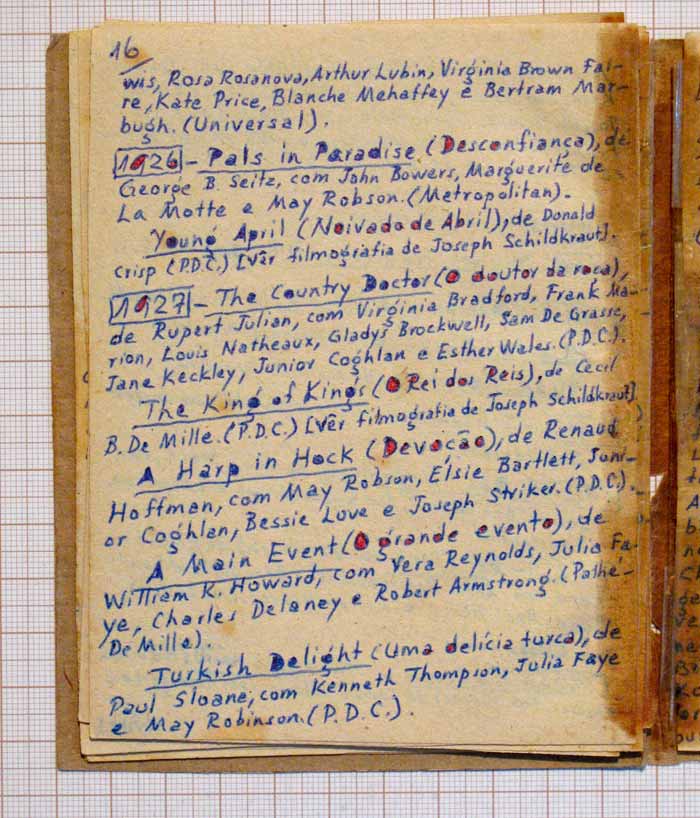 16
wis, Rosa Rosanova, Arthur Lubin, Virginia Brown Fai-
re, Kate Price, Blanche Mehaffey e Bertram Mar-
bugh. (Universal).
1926 - Pals in Paradise (Desconfiança), de
George B. Seitz, com John Bowers, Marguerite de
La Motte e May Robson. (Metropolitan).
Young April (Noivado de Abril), de Donald
Crisp (P.D.C.) [Vêr filmografia de Joseph Schildkraut].
1927 - The Country Doctor (O doutor da roça),
de Rupert Julian, com Virginia Bradford, Frank Ma-
rion, Louis Natheaux, Gladys Brockwell, Sam De Grasse,
Jane Keckley, Junior Coghlan e Esther Wales. (P.D.C.).
The King of Kings (O Rei dos Reis), de Cecil
B. De Mille. (P.D.C.) [Vêr filmografia de Joseph Schildkraut]
A Harp in Hock (Devoção), de Renaud
Hoffman, com May Robson, Elsie Bartlett, Juni-
or Coghlan, Bessie Love e Joseph Striker. (P.D.C.).
A Main Event (O grande evento), de
William K. Howard, com Vera Reynolds, Julia Fa-
ye, Charles Delaney e Robert Armstrong. (Pathé-
De Mille).
Turkish Delight (Uma delícia turca), de
Paul Sloane, com Kenneth Thompson, Julia Faye
e May Robinson. (P.D.C.).